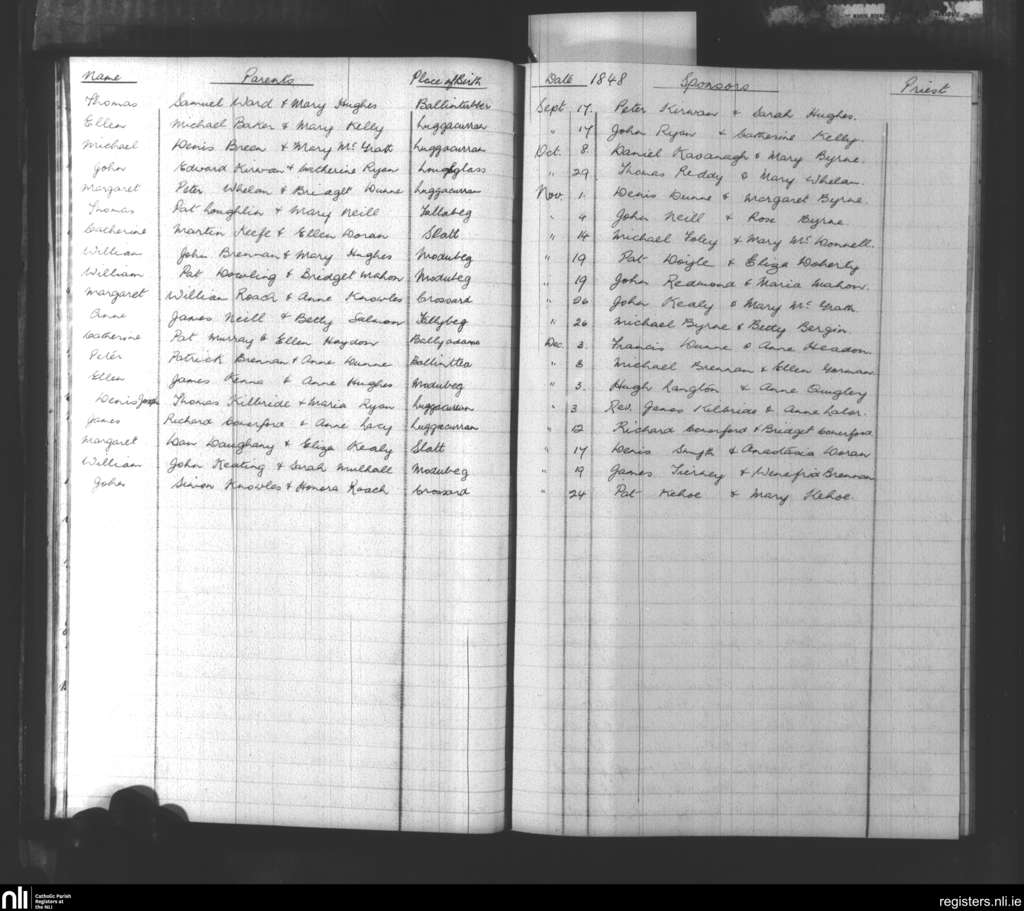 Name Parents Place of Birth Date 1848 Sponsors Priest
Thomas Samuel Ward & Mary Hughes Ballintubber Sept 17. Peter Kirwan & Sarah Hughes.
Ellen Michael Baker & Mary Kelly Luggacurran " 17 John Ryan & Catherine Kelly.
Michael Denis Breen & Mary McGrath Luggacurran Oct. 8 Daniel Kavanagh & Mary Byrne.
John Edward Kirwan & Catherine Ryan Loughglass " 29. Thomas Reddy & Mary Whelan.
Margaret Peter Whelan & Bridget Dunne Luggacurran Nov. 1. Denis Dunne & Margaret Byrne.
Thomas Pat Loughlin & Mary Neill " 4 John Neill & Rose Byrne
Catherine Martin Keefe & Ellen Doran Slatt. " 14 Michael Foley & Mary McDonnell.
William John Brennan & Mary Hughes Modubeg " 19 Pat Doigle & Eliza Doherty
William Pat Dowling & Bridget Mahon Modubeg " 19 John Redmond & Maria Mahon.
Margaret William Roach & Anne Knowles Crossard " 26 John Kealy & Mary McGrath
Anne James Neill & Betty Salmon Tullybeg " 26 Michael Byrne & Betty Bergin.
Catherine Pat Murray & Ellen Haydon Ballyadams Dec. 3. Francis Dunne & Anne Headon.
Peter Patrick Brennan & Anne Dunne Ballinttea " 3 Michael Brennan & Ellen Gorman
Ellen James Kenna & Anne Hughes Modubeg " 3. Hugh Langton & Anne Quigley
Denis Joseph Thomas Kilbride & Maria Ryan Luggacurran " 3 Rev. James Kilbride & Anne Lalor.
James Richard Comerford & Anne Lacy Luggacurran " 12 Richard Comerford & Bridget Comerford
Margaret Dan Daughany & Eliza Kealy Slatt " 17 Denis Smyth & Anastasia Doran
William John Keating & Sarah Mulhall Modubeg " 19 James Tierney & Winefrid Brennan
John Simon Knowles & Honora Roach Crossard " 24 Pat Kehoe & Mary Kehoe.
nli Catholic Parish
Registers at
the NLI
registers.nli.ie